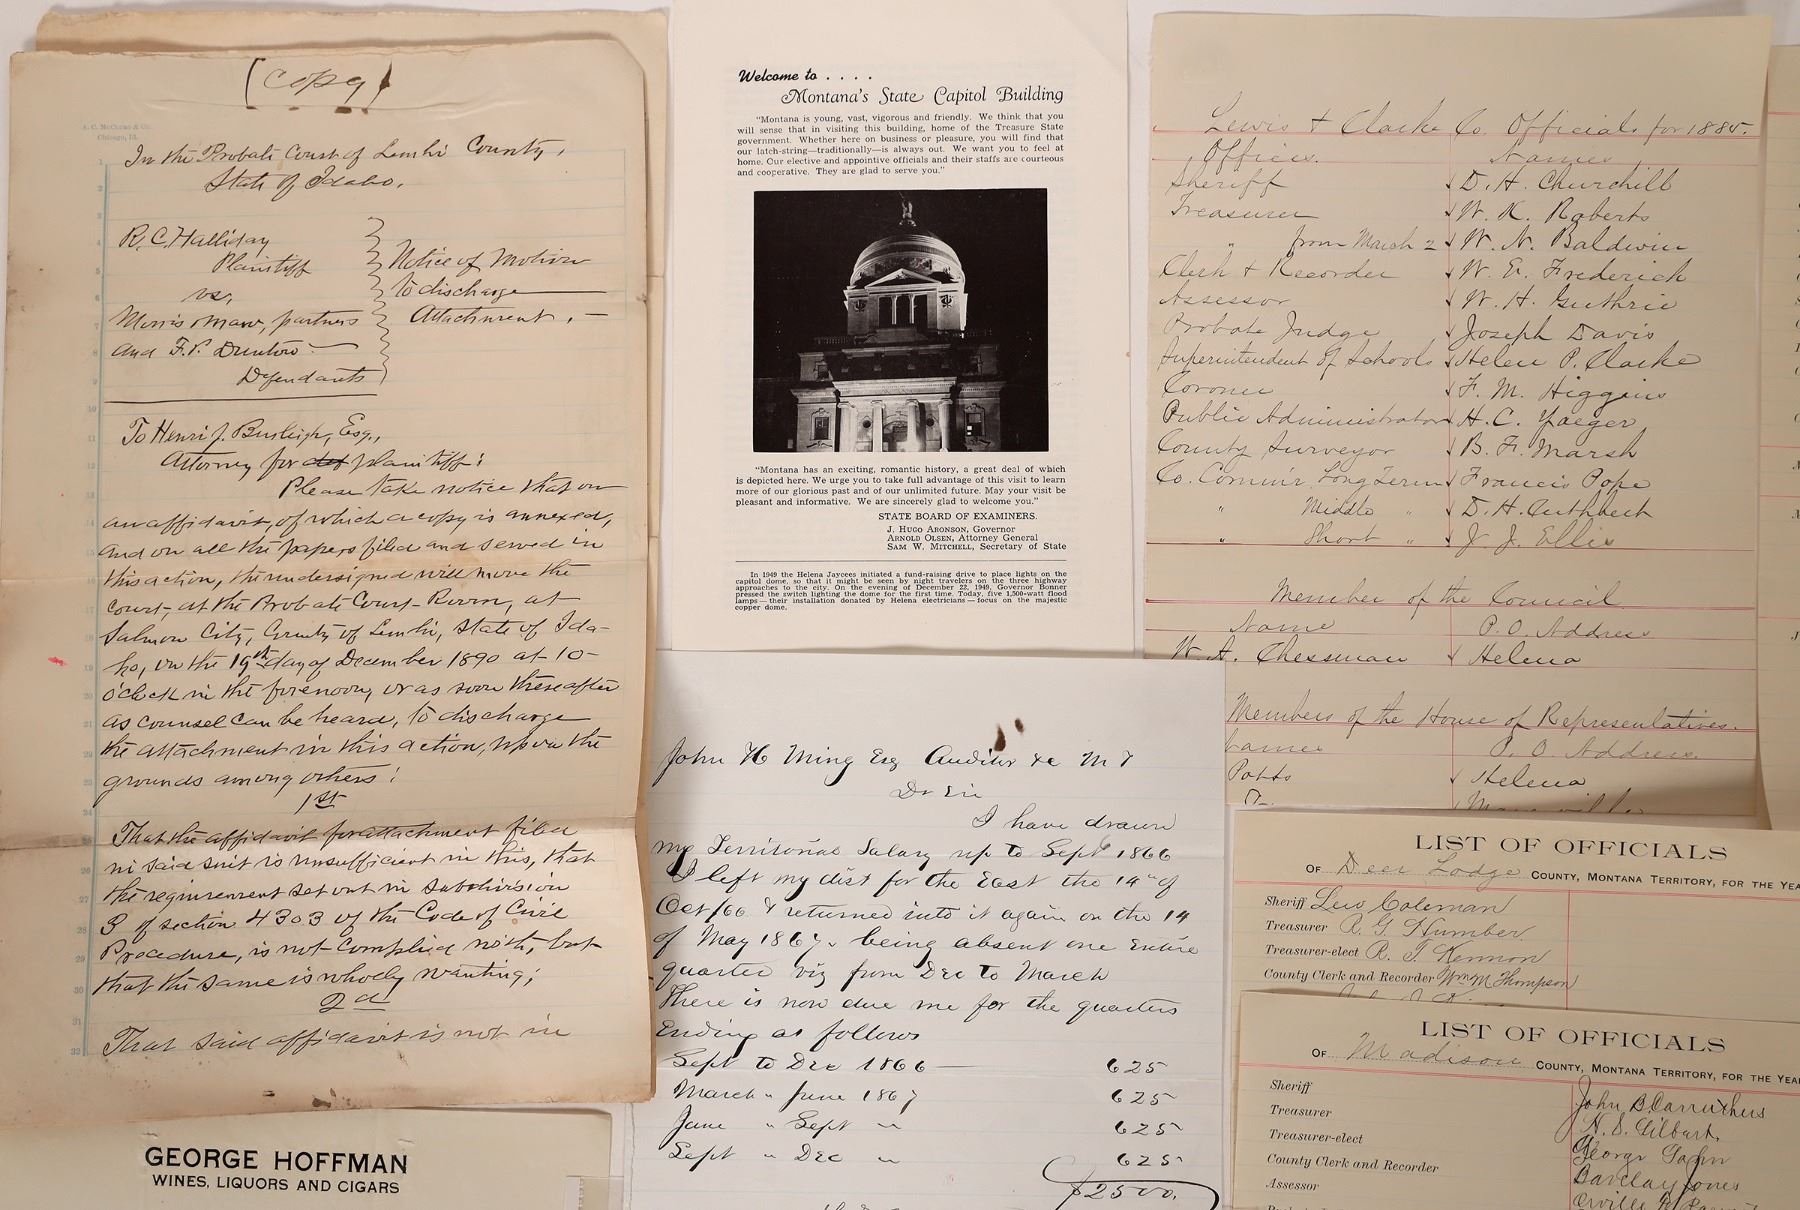 (Copy)
A. C. McClurg & Co.
Chicago, Ill.
In the Probate Court of Lemhi County,
State of Idaho.
R. C. Halliday
Plaintiff
vs,
Morris & Maw, partners
and F. P.
Defendants
Notice of Motion
to discharge
Attachment.
To Henri J. Burleigh, Esq.,
Attorney for def plaintiff:
Please take notice that on
an affidavit, of which a copy is annexed,
and on all the papers filed and served in
this action, the undersigned will move the
Court, at the Probate Court-Room, at
Salmon City, County of Lemhi, State of Ida-
ho, on the 19th day of December 1890 at 10-
o'clock in the forenoon, or as soon thereafter
as counsel can be heard, to discharge
the attachment in this action, upon the
grounds among others:
1st
That the affidavit for attachment filed
in said suit is insufficient in this, that
the requirement set out in subdivision
3 of section 4303 of the Code of Civil
Procedure, is not complied with, but
that the same is wholly wanting;
2d
That said affidavit is not in
GEORGE HOFFMAN
WINES, LIQUORS AND CIGARS
Welcome to . . . .
Montana's State Capitol Building
"Montana is young, vast, vigorous and friendly. We think that you
will sense that in visiting this building, home of the Treasure State
government. Whether here on business or pleasure, you will find that
our latch-string—traditionally—is always out. We want you to feel at
home. Our elective and appointive officials and their staffs are courteous
and cooperative. They are glad to serve you."
"Montana has an exciting, romantic history, a great deal of which
is depicted here. We urge you to take full advantage of this visit to learn
more of our glorious past and of our unlimited future. May your visit be
pleasant and informative. We are sincerely glad to welcome you."
STATE BOARD OF EXAMINERS.
J. HUGO ARONSON, Governor
ARNOLD OLSEN, Attorney General
SAM W. MITCHELL, Secretary of State
In 1949 the Helena Jaycees initiated a fund-raising drive to place lights on the
capitol dome, so that it might be seen by night travelers on the three highway
approaches to the city. On the evening of December 22, 1949, Governor Bonner
pressed the switch lighting the dome for the first time. Today, five 1,500-watt flood
lamps—their installation donated by Helena electricians—focus on the majestic
copper dome.
John H Ming Esq Auditor &c M T
Dr Sir
I have drawn
my Territorial Salary up to Sept 1866
I left my dist for the East the 14" of
Oct/66 & returned into it again on the 14
of May 1867. being absent one Entire
quarter viz from Dec to March
There is now due me for the quarters
Ending as follows
Sept to Dec 1866 — 625
March " June 1867 625
June " Sept " 625
Sept " Dec " 625
$2500.
Lewis & Clarke Co. Officials for 1885.
Offices. Names
Sheriff D. H. Churchill
Treasurer W. K. Roberts
" from March 2 W. N. Baldwin
Clerk & Recorder W. E. Frederick
Assessor W. H. Guthrie
Probate Judge Joseph Davis
Superintendent of Schools Helen P. Clarke
Coroner F. M. Higgins
Public Administrator H. C. Yaeger
County Surveyor B. F. Marsh
Co. Commir Long Term Francis Pope
" Middle " D. H. Cuthbert
" Short " J. J. Ellis
Member of the Council
Name P. O. Address
W. A. Chessman Helena
Members of the House of Representatives.
Names P. O. Address.
Potts Helena
LIST OF OFFICIALS
OF Deer Lodge COUNTY, MONTANA TERRITORY, FOR THE YEA
Sheriff Lew Coleman
Treasurer R. G. Humber
Treasurer-elect R. T. Kennon
County Clerk and Recorder Wm M Thompson
LIST OF OFFICIALS
OF Madison COUNTY, MONTANA TERRITORY, FOR THE YEA
Sheriff John B. Carruthers
Treasurer H. S. Gilbert.
Treasurer-elect George Gohn
County Clerk and Recorder Barclay Jones
Assessor Orville